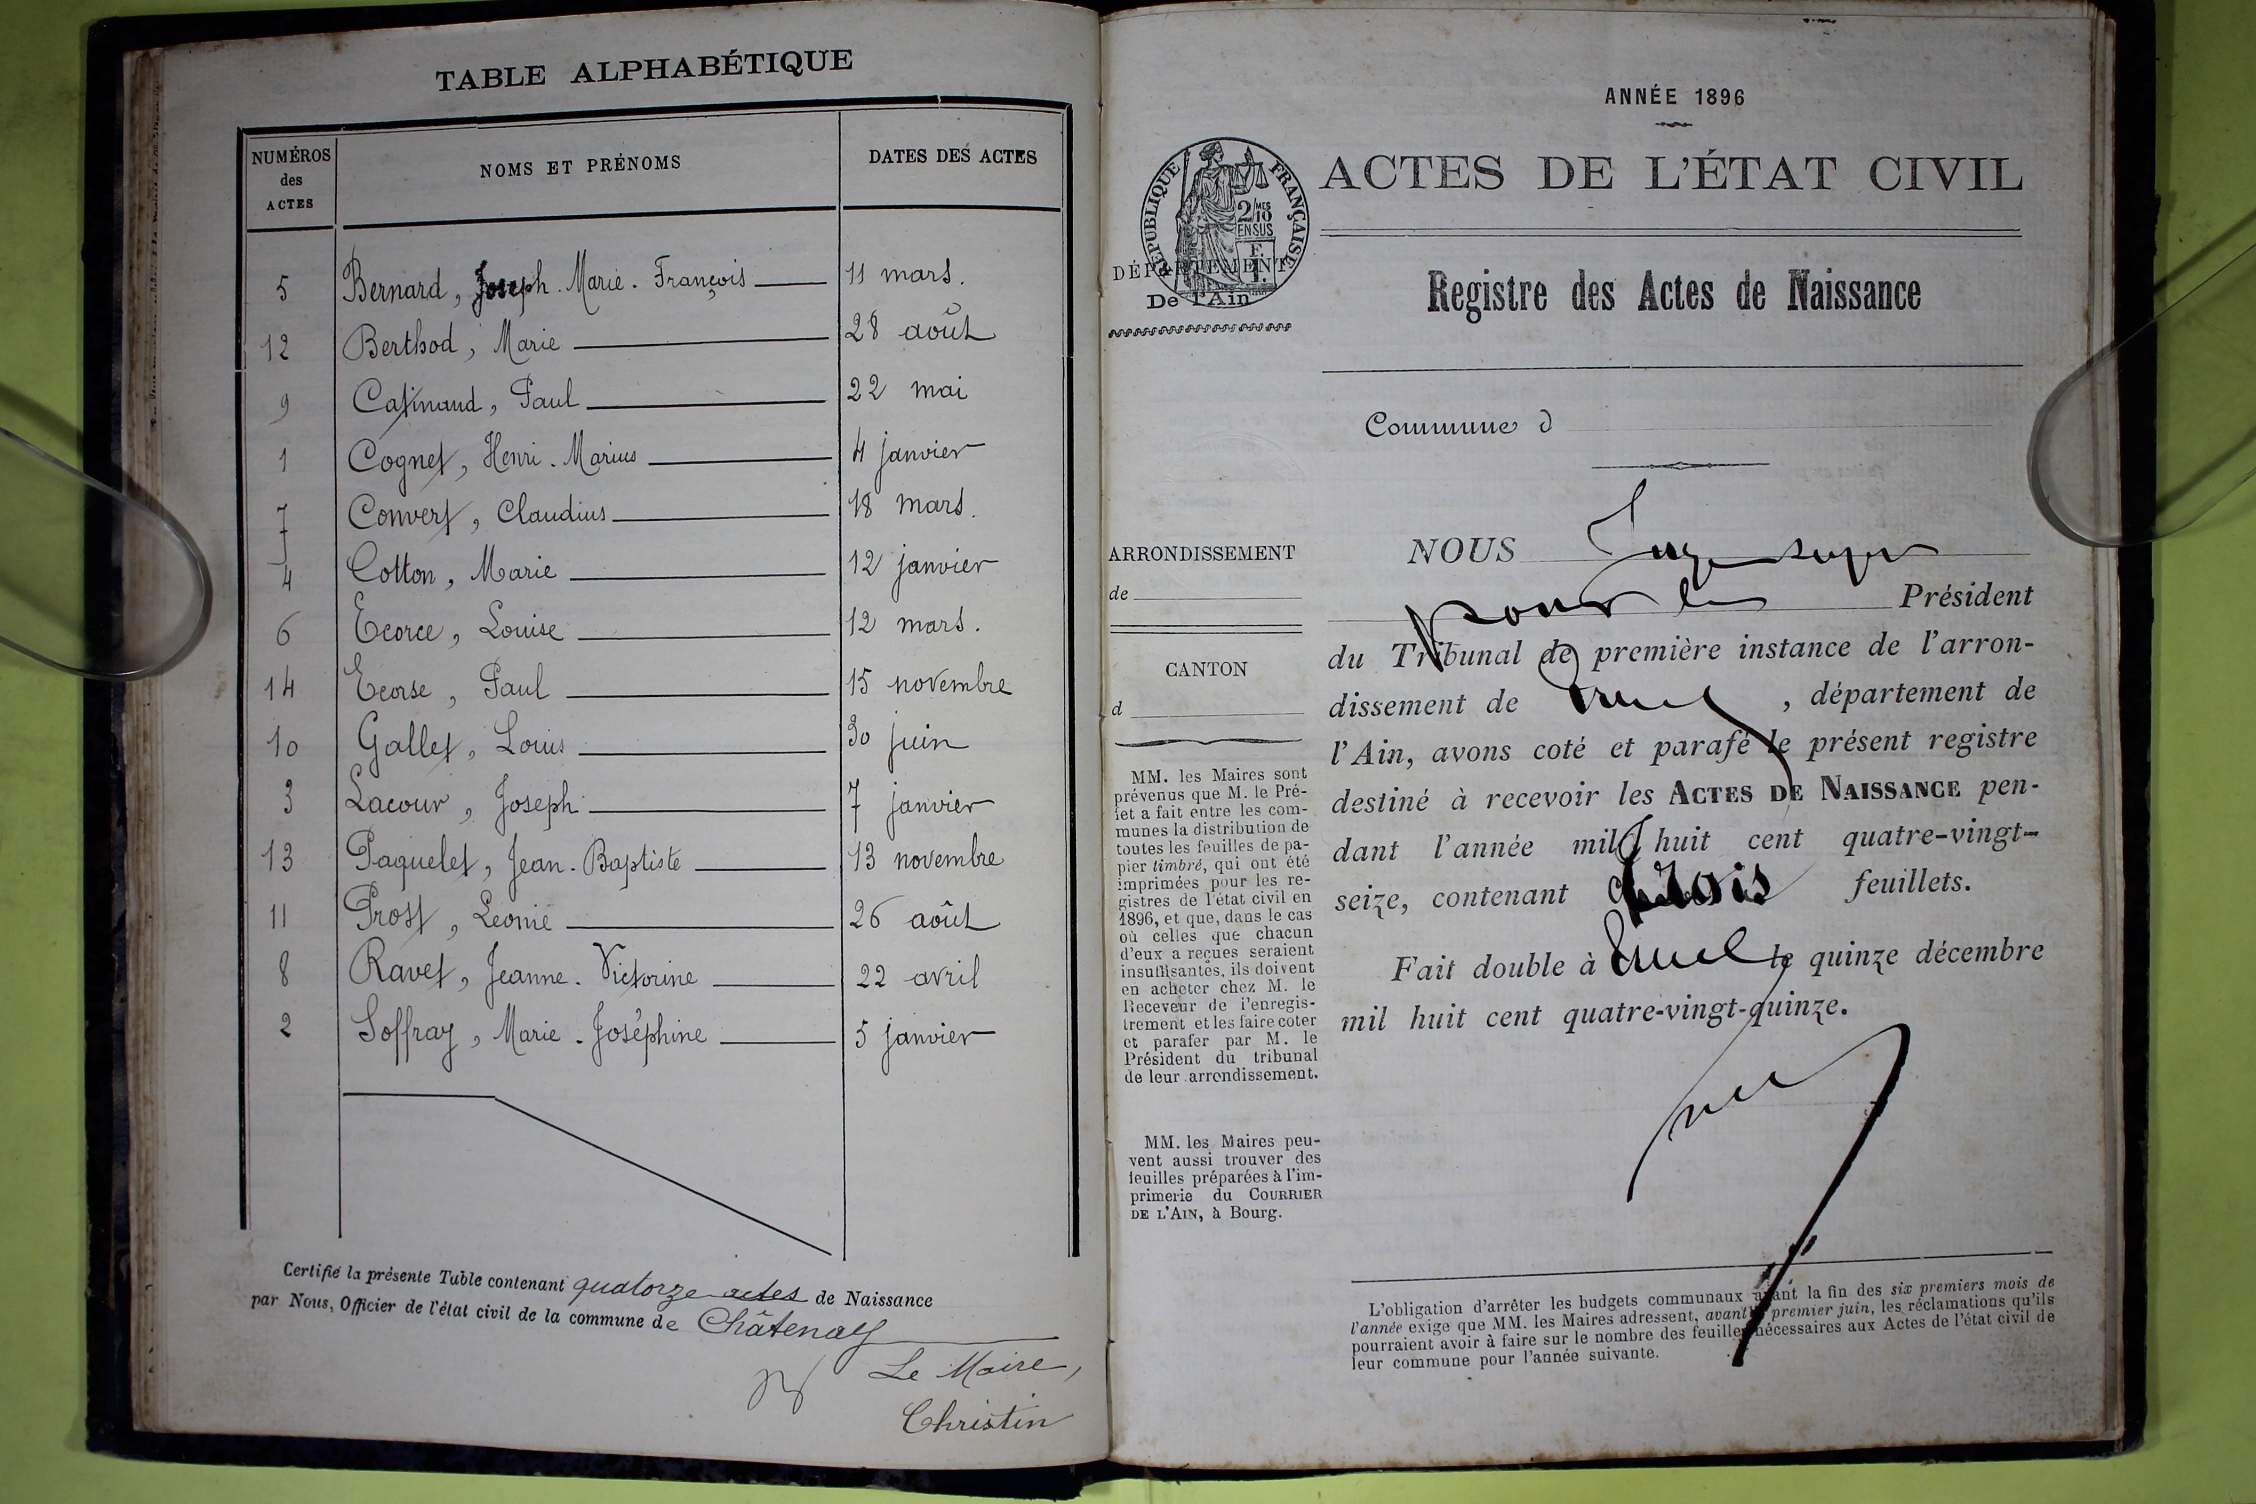 TABLE ALPHABÉTIQUE
NUMÉROS
des
ACTES
NOMS ET PRÉNOMS
DATES DES ACTES
5 Bernard, Joseph. Marie. François 11 mars.
12 Berthod, Marie 28 août
9 Catinaud, Paul 22 mai
1 Cognet, Henri. Marius 4 janvier
7 Convert, Claudius 18 mars.
4 Cotton, Marie 12 janvier
6 Ecorce, Louise 12 mars.
14 Ecorse, Paul 15 novembre
10 Gallet, Louis 30 juin
3 Lacour, Joseph 7 janvier
13 Paquelet, Jean. Baptiste 13 novembre
11 Prost, Léonie 26 août
8 Ravet, Jeanne. Victorine 22 avril
2 Soffray, Marie. Joséphine 5 janvier
Certifié la présente Table contenant quatorze actes de Naissance
par Nous, Officier de l'état civil de la commune de Châtenay
Le Maire,
Christin
ANNÉE 1896
RÉPUBLIQUE FRANÇAISE
2/10 MES
EN SUS
ACTES DE L'ÉTAT CIVIL
DÉPARTEMENT
De l'Ain
Registre des Actes de Naissance
Commune d
ARRONDISSEMENT
de
CANTON
d
MM. les Maires sont
prévenus que M. le Pré-
fet a fait entre les com-
munes la distribution de
toutes les feuilles de pa-
pier timbré, qui ont été
imprimées pour les re-
gistres de l'état civil en
1896, et que, dans le cas
où celles que chacun
d'eux a reçues seraient
insuffisantes, ils doivent
en acheter chez M. le
Receveur de l'enregis-
trement et les faire coter
et parafer par M. le
Président du tribunal
de leur arrondissement.
MM. les Maires peu-
vent aussi trouver des
feuilles préparées à l'im-
primerie du COURRIER
DE L'AIN, à Bourg.
NOUS Juge
pour le Président
du Tribunal de première instance de l'arron-
dissement de , département de
l'Ain, avons coté et parafé le présent registre
destiné à recevoir les ACTES DE NAISSANCE pen-
dant l'année mil huit cent quatre-vingt-
seize, contenant trois feuillets.
Fait double à le quinze décembre
mil huit cent quatre-vingt-quinze.
L'obligation d'arrêter les budgets communaux avant la fin des six premiers mois de
l'année exige que MM. les Maires adressent, avant le premier juin, les réclamations qu'ils
pourraient avoir à faire sur le nombre des feuilles nécessaires aux Actes de l'état civil de
leur commune pour l'année suivante.